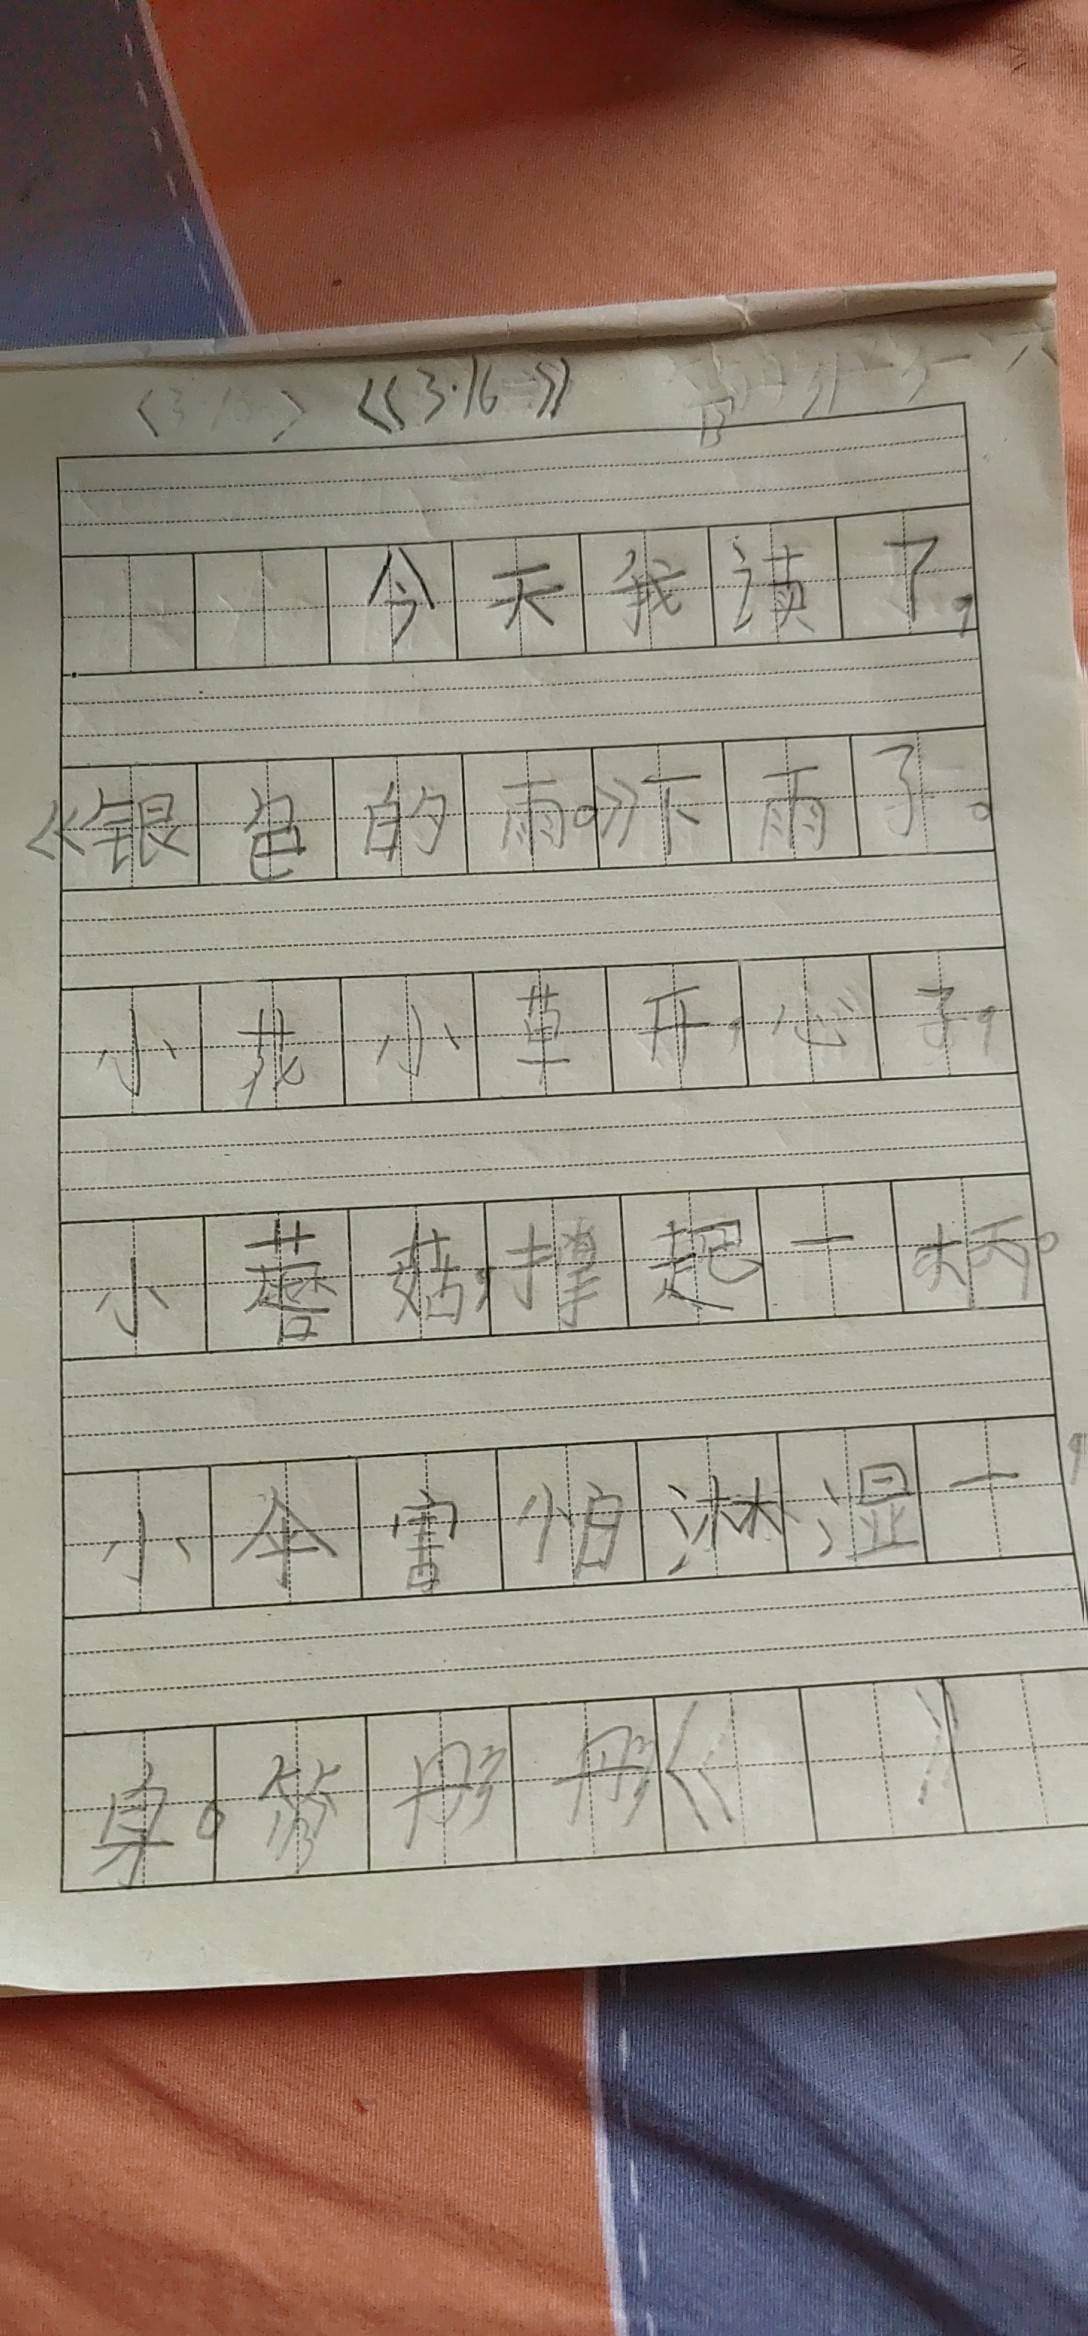 《3·16》
今天我读了，
《银色的雨。》下雨了。
小花小草开，心了，
小蘑菇，撑起一柄。
小伞害怕淋湿一，
身。彬彬《 》